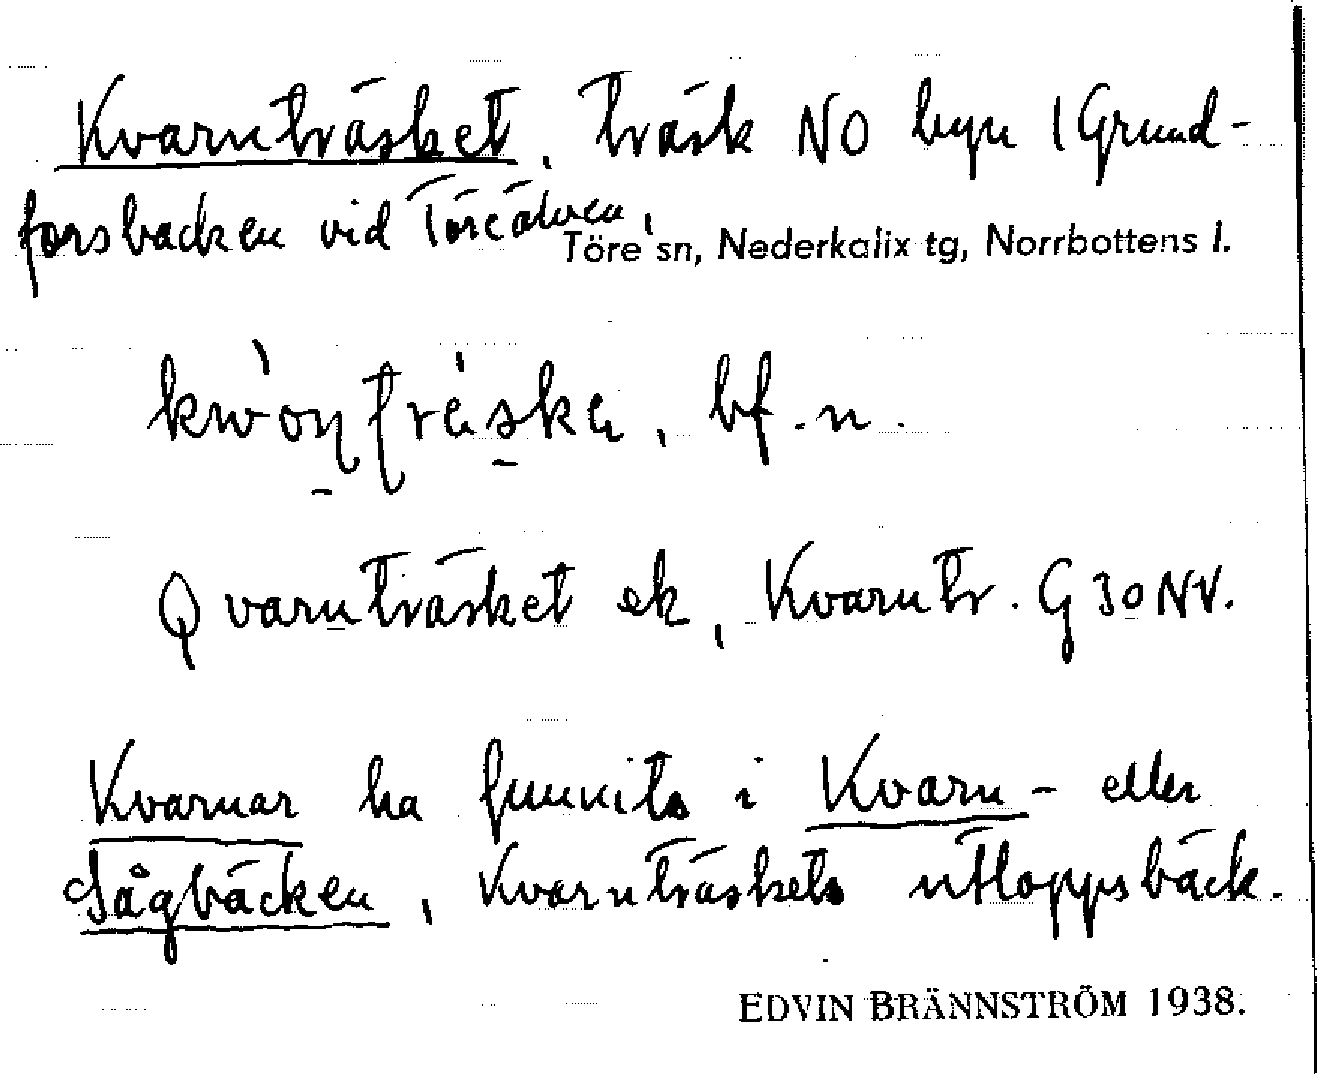 Kvarnträsket, träsk NO byn i Grund-
forsbacken vid Töreälven,
Töre sn, Nederkalix tg, Norrbottens l.
bf. n.
Qvarnträsket ek, Kvarntr. G 30 NV.
Kvarnar ha funnits i Kvarn- eller
Sågbäcken, Kvarnträskets utloppsbäck.
EDVIN BRÄNNSTRÖM 1938.